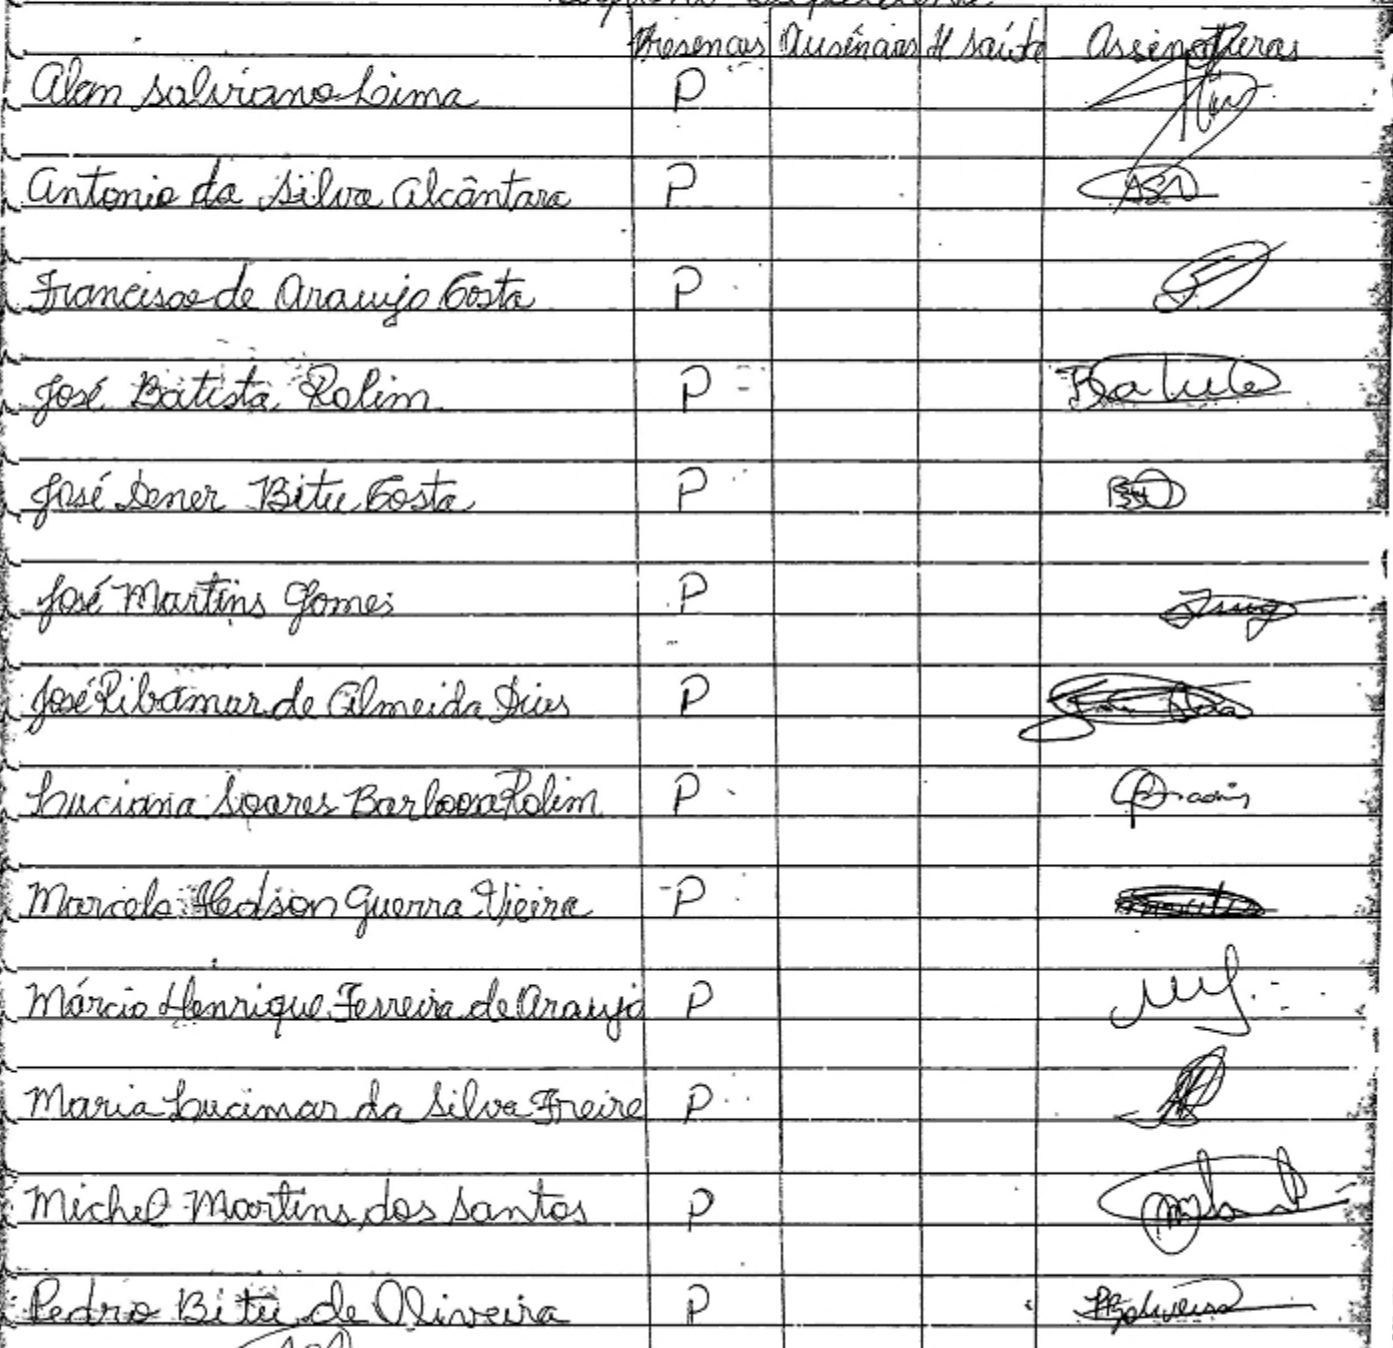 Presenças Ausências H saída Assinaturas
Alan Salviano Lima P
Antonio da Silva Alcântara P ASA
Francisco de Araujo Costa P
José Batista Rolim P Batista
José Dener Bitu Costa P
José Martins Gomes P
José Ribamar de Almeida Dias P
Luciana Soares Barbosa Rolim P
Marcelo Hedson Guerra Vieira P
Márcio Henrique Ferreira de Araujo P
Maria Lucimar da Silva Freire P
Michel Martins dos Santos P
Pedro Bitu de Oliveira P PBOliveira